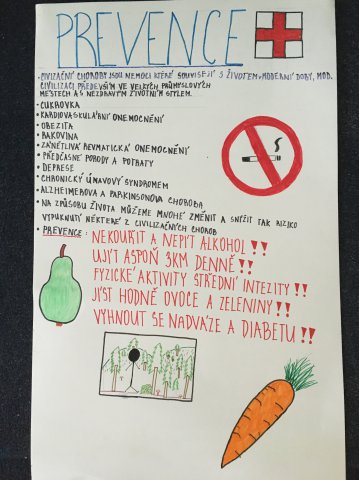 PREVENCE
• CIVIZAČNÍ CHOROBY JSOU NEMOCI KTERÉ SOUVISEJÍ S ŽIVOTEM MODERNÍ DOBY, MOD.
CIVILIZACI PŘEDEVŠÍM VE VELKÝCH PRŮMYSLOVÝCH
MĚSTECH A S NEZDRAVÝM ŽIVOTNÍM STYLEM.
• CUKROVKA
• KARDIOVASKULÁRNÍ ONEMOCNĚNÍ
• OBEZITA
• RAKOVINA
• ZÁNĚTLIVÁ REVMATICKÁ ONEMOCNĚNÍ
• PŘEDČASNÉ PORODY A POTRATY
• DEPRESE
• CHRONICKÝ ÚNAVOVÝ SYNDROMEM
• ALZHEIMEROVA A PARKINSONOVA CHOROBA
• NA ZPŮSOBU ŽIVOTA MŮŽEME MNOHÉ ZMĚNIT A SNÍŽIT TAK RIZIKO
VYPUKNUTÍ NĚKTERÉ Z CIVILIZAČNÍCH CHOROB
• PREVENCE: NEKOUŘIT A NEPÍT ALKOHOL!!
UJÍT ASPOŇ 3KM DENNĚ!!
FYZICKÉ AKTIVITY STŘEDNÍ INTEZITY!!
JÍST HODNĚ OVOCE A ZELENINY!!
VYHNOUT SE NADVÁZE A DIABETU!!